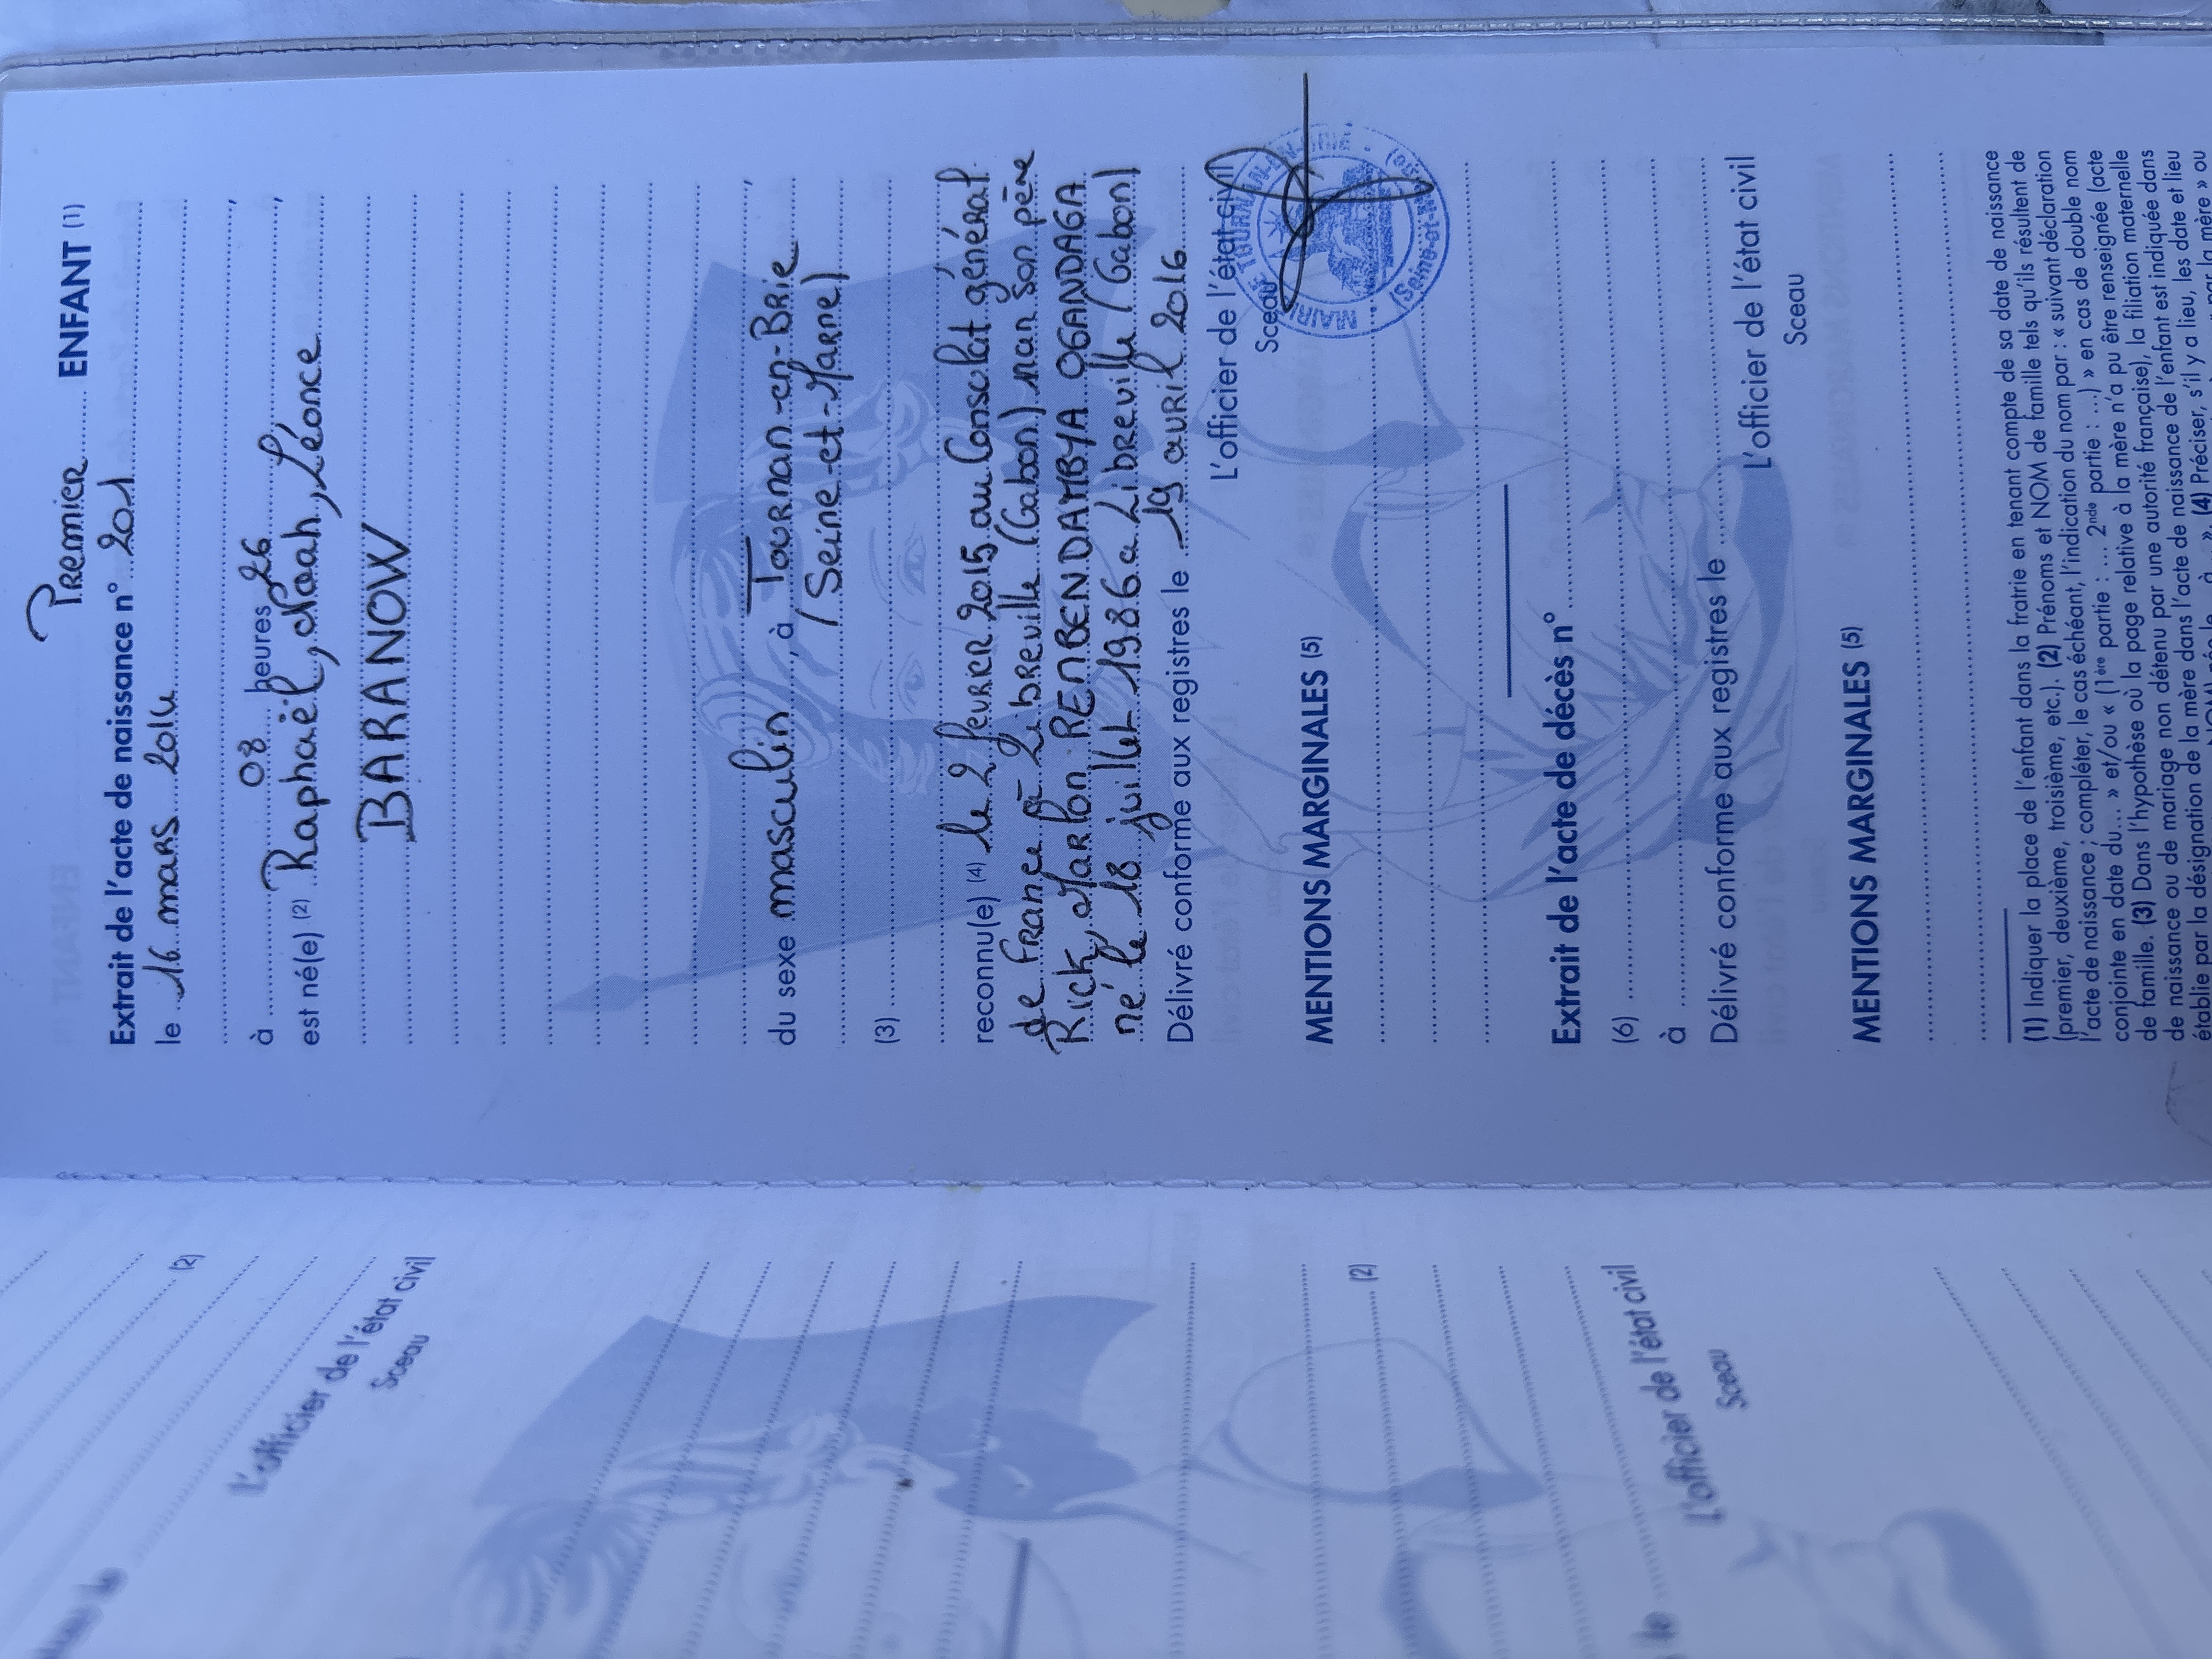 Premier ENFANT (1)
Extrait de l'acte de naissance n° 201
le 16 mars 2014
à 08 heures 26,
est né(e) (2) Raphaël, Noah, Léonce
BARANOW
du sexe masculin, à Tournan-en-Brie
(Seine-et-Marne)
(3)
reconnu(e) (4) le 2 février 2015 au Consulat général
de France à Libreville (Gabon) par son père
Rick, Marlon RENBENDAMBYA OGANDAGA
né le 18 juillet 1986 à Libreville (Gabon)
Délivré conforme aux registres le 19 avril 2016
L'officier de l'état civil
Sceau
MAIRIE DE TOURNAN-EN-BRIE
(Seine-et-Marne)
MENTIONS MARGINALES (5)
Extrait de l'acte de décès n°
(6)
à
Délivré conforme aux registres le
L'officier de l'état civil
Sceau
MENTIONS MARGINALES (5)
(1) Indiquer la place de l'enfant dans la fratrie en tenant compte de sa date de naissance
(premier, deuxième, troisième, etc.). (2) Prénoms et NOM de famille tels qu'ils résultent de
l'acte de naissance ; compléter, le cas échéant, l'indication du nom par : « suivant déclaration
conjointe en date du... » et/ou « (1ère partie : ... 2nde partie : ...) » en cas de double nom
de famille. (3) Dans l'hypothèse où la page relative à la mère n'a pu être renseignée (acte
de naissance ou de mariage non détenu par une autorité française), la filiation maternelle
établie par la désignation de la mère dans l'acte de naissance de l'enfant est indiquée dans
(4) Préciser, s'il y a lieu, les date et lieu
(2)
L'officier de l'état civil
Sceau
(2)
L'officier de l'état civil
Sceau